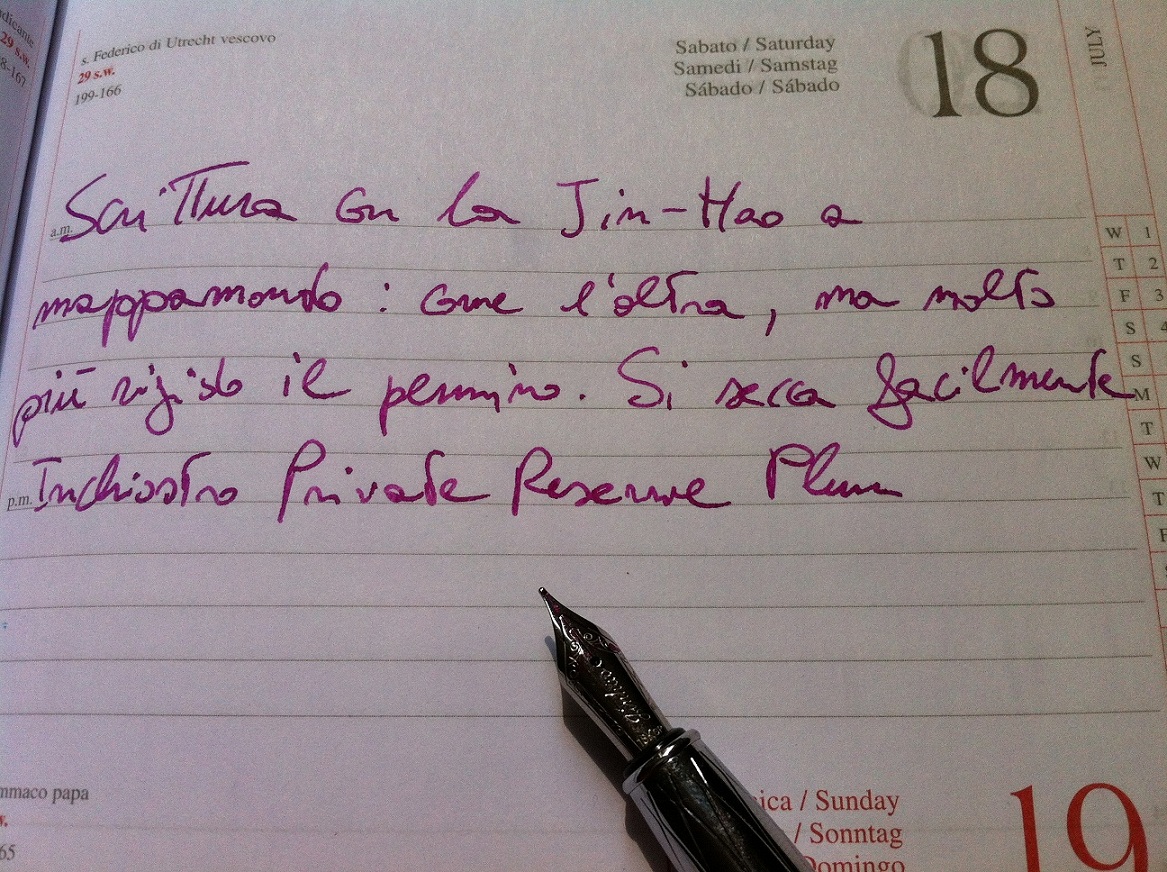 dicante
29 s.w.
8-167
s. Federico di Utrecht vescovo
29 s.w.
199-166
Sabato / Saturday
Samedi / Samstag
Sábado / Sábado
18
JULY
Scrittura con la Jin-Hao a
mappamondo : come l'altra, ma molto
più rigido il pennino. Si secca facilmente
Inchiostro Private Reserve Plum
a.m.
p.m.
W 1
T 2
F 3
S 4
S
M
T
W
T
F
Jinhao
mmaco papa
w.
65
ica / Sunday
/ Sonntag
Domingo
19